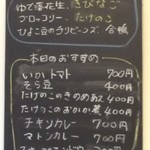 ゆで落花生、きびなご
ブロッコリー、たけのこ
ひよこ豆のチリビーンズ 合鴨
本日のおすすめ
いかトマト 700円
そら豆 400円
たけのこのきのめあえ 400円
たけのこのおかか煮 400円
チキンカレー 700円
マトンカレー 700円